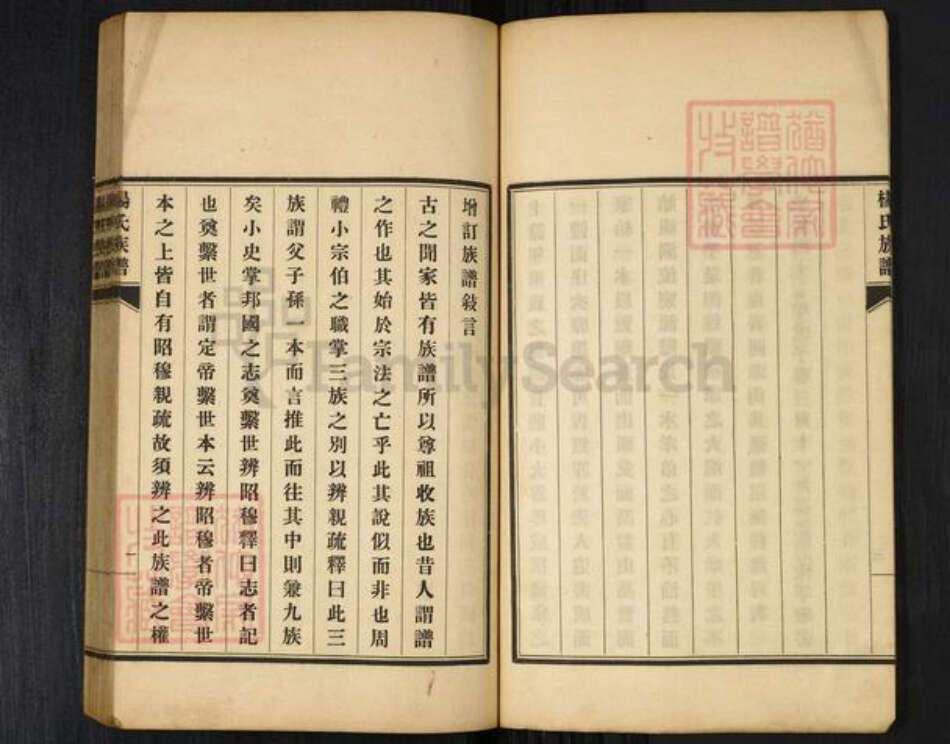 楊氏族譜
增訂族譜敍言
古之聞家皆有族譜所以尊祖收族也昔人謂譜
之作也其始於宗法之亡乎此其說似而非也周
禮小宗伯之職掌三族之別以辨親疏釋曰此三
族謂父子孫一本而言推此而往其中則兼九族
矣小史掌邦國之志奠繫世辨昭穆釋曰志者記
也奠繫世者謂定帝繫世本云辨昭穆者帝繫世
本之上皆自有昭穆親疏故須辨之此族譜之權
楊氏族譜
FamilySearch